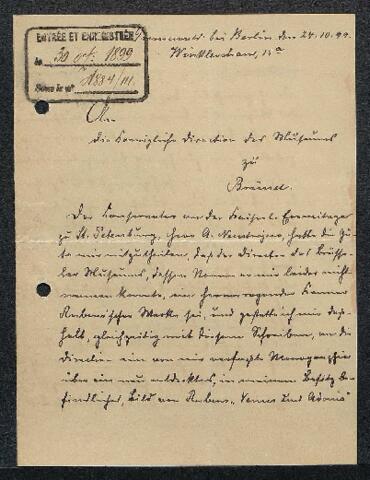 ENTRÉE ET ENREGISTRÉE
le 30 oct. 1899
Sous le no 1884/m.
bei Berlin den 24.10.99.
Winklerstrasse, 13a
An
die Königliche Direction des Museums
zu
Brüssel.
Der Konservator an der Kaiserl. Eremitage
zu St. Petersburg, Herr A. Neustrojew, hatte die Güte
mir mitzutheilen, dass der Director des Brüsse-
ler Museums, dessen Namen er mir leider nicht
nennen konnte, ein hervorragender Kenner
Rubens'scher Werke sei, und gestatte ich mir des-
halb, gleichzeitig mit diesem Schreiben, an die
Direction eine von mir verfasste Monographie
über ein neu entdecktes, in meinem Besitz be-
findliches, Bild von Rubens „Venus und Adonis"